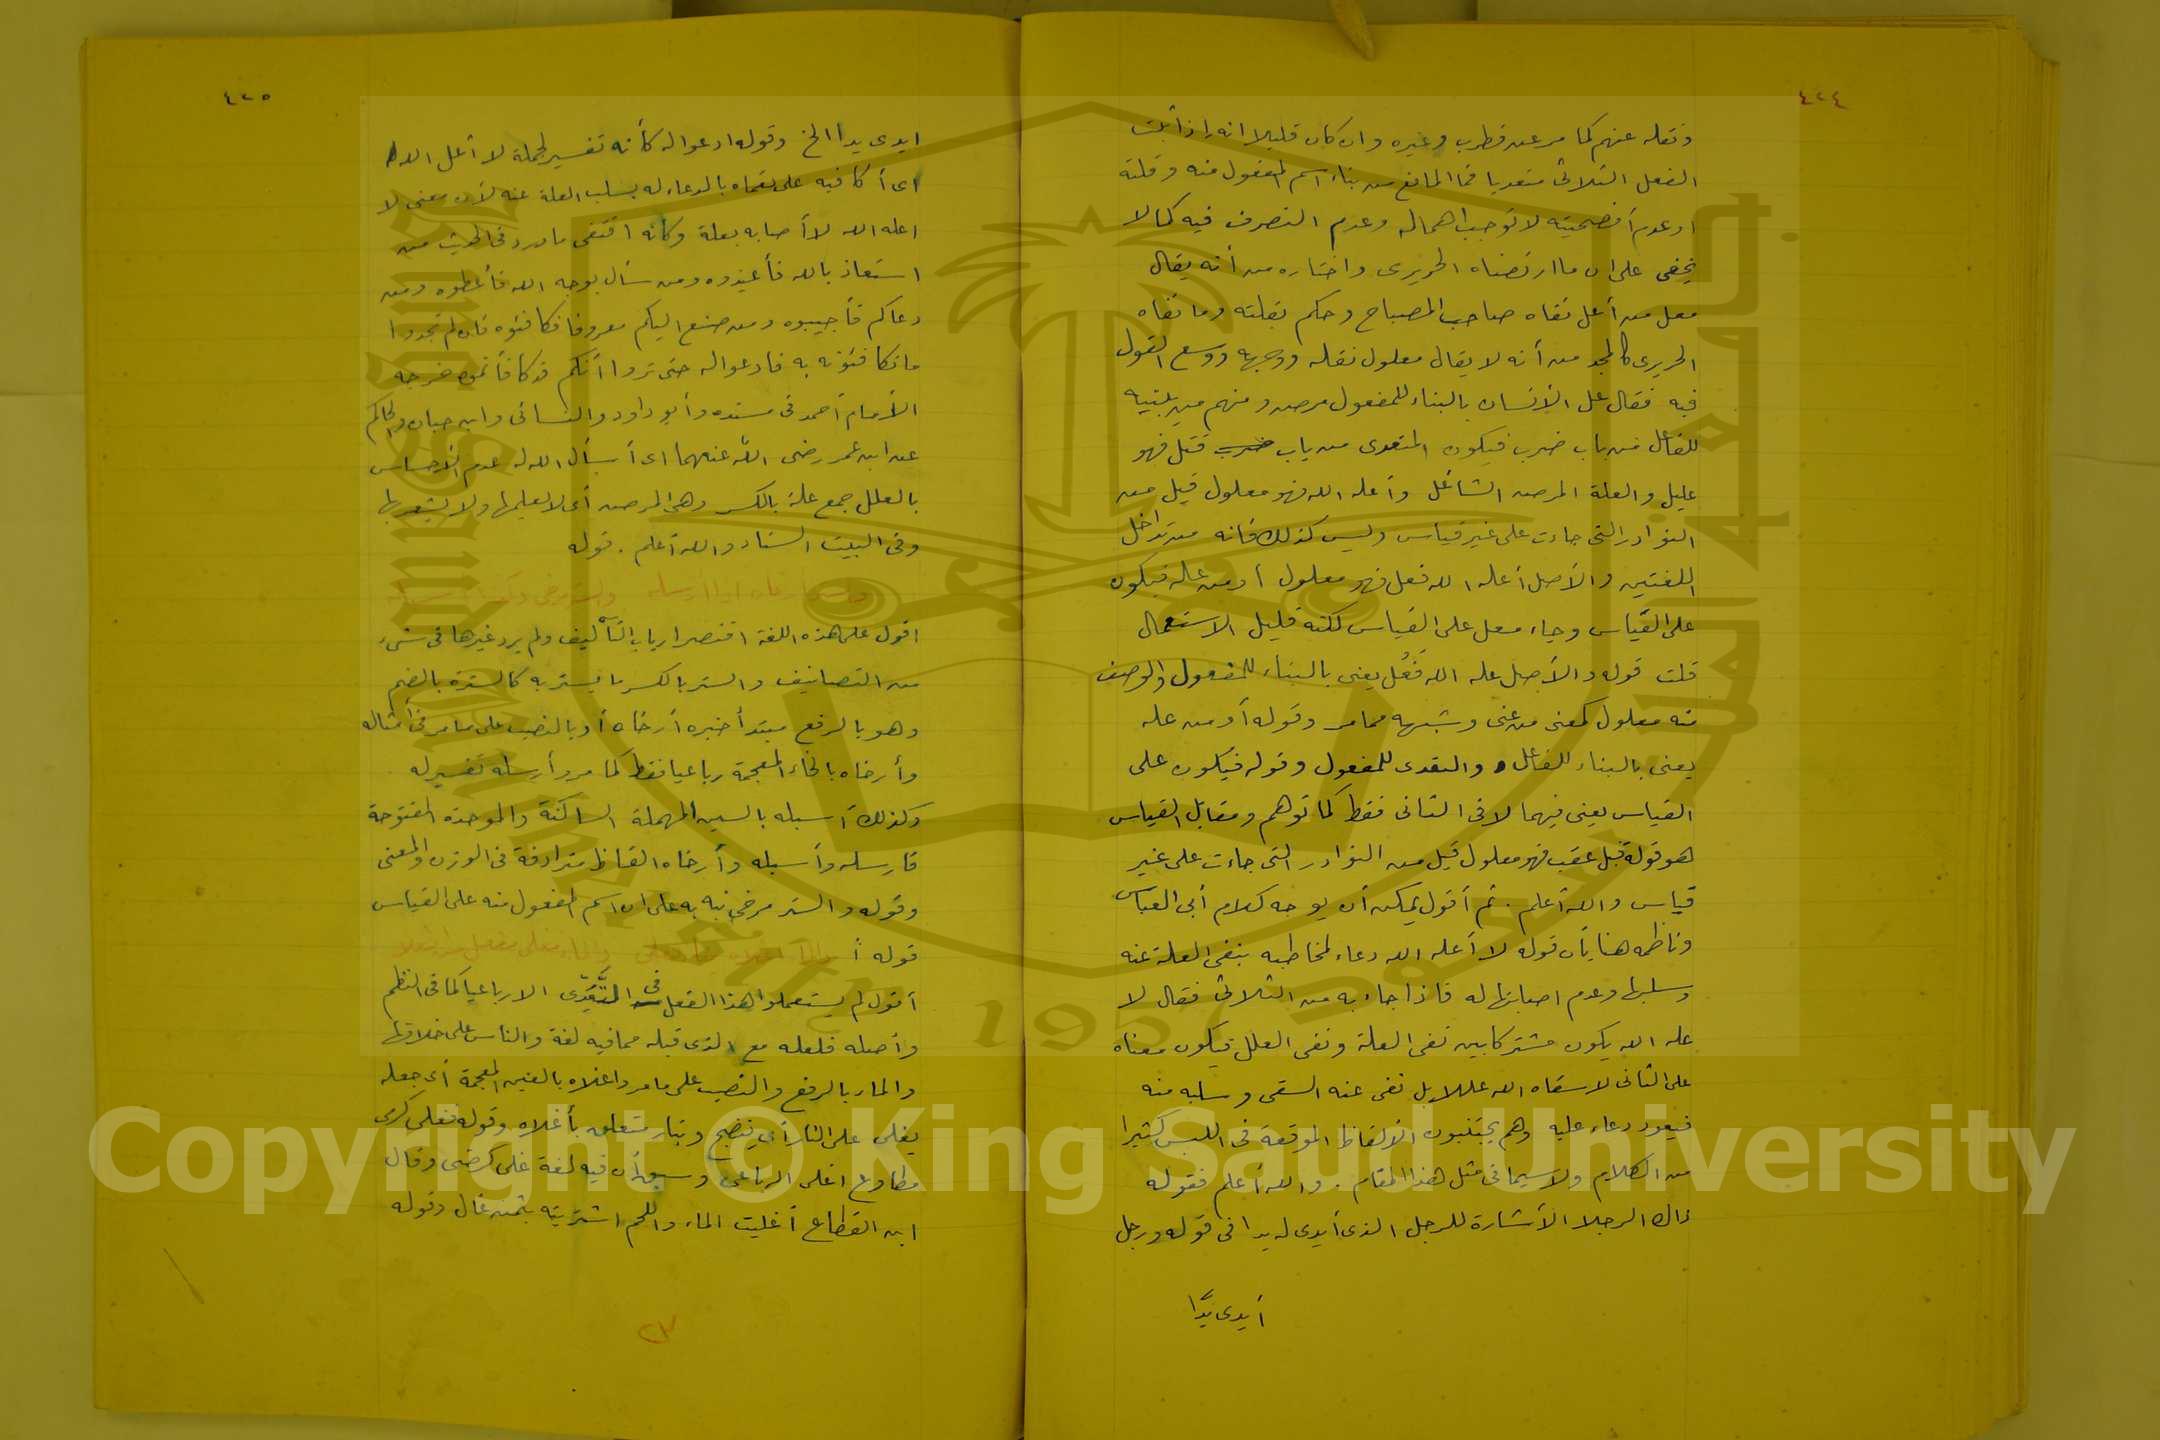 ٤٢٤
ونقله عنهم كما مر عن قطرب وغيره وان كان قليلا انه إذا ثبت
الفعل الثلاثى متعديا فما المانع من بناء اسم المفعول منه وقلته
او عدم أفصحيته لا توجب اهماله وعدم التصرف فيه كما لا
يخفى على ان ما ارتضاه الحريرى واختاره من أنه يقال
معل من أعل نفاه صاحب المصباح وحكم بقلته وما نفاه
الحريرى كالمجد من أنه لا يقال معلول نقله ووجهه ووسع القول
فيه فقال عل الأنسان بالبناء للمفعول مرض ومنهم من يبنيه
للفاعل من باب ضرب فيكون المتعدى من باب قتل فهو
عليل والعلة المرض الشاغل وأعله الله فهو معلول قيل من
النوادر التى جاءت على غير قياس وليس كذلك فانه من تداخل
اللغتين والأصل أعله الله فعل فهو معلول أو من عله فيكون
على القياس وجاء معل على القياس لكنه قليل الاستعمال
قلت قوله والأصل عله الله فعُل يعنى بالبناء للمفعول والوصف
منه معلول كمعنى من عنى وشبهه مما مر وقوله أو من عله
يعنى بالبناء للفاعل والتعدى للمفعول وقوله فيكون على
القياس يعنى فيهما لا فى الثانى فقط كما توهم ومقابل القياس
هو قوله قبل عقب فهو معلول قيل من النوادر التى جاءت على غير
قياس والله أعلم . ثم أقول يمكن أن يوجه كلام أبى العباس
وناظمه هنا بأن قوله لا أعله الله دعاء لمخاطبه بنفى العلة عنه
وسلبها وعدم اصابتها له فاذا جاء به من الثلاثى فقال لا
عله الله يكون مشتركا بين نفى العلة ونفى العلل فيكون معناه
على الثانى لا سقاه الله عللا بل نفى عنه السقى وسلبه منه
فيعود دعاء عليه وهم يجتنبون الألفاظ الموقعة فى اللبس كثيرا
من الكلام ولا سيما فى مثل هذا المقام . والله أعلم فقوله
ذاك الرجلا الأشارة للرجل الذى أيدى له يدا فى قوله ورجل
أيدى يدًا
٤٢٥
ايدى يدا الخ وقوله ادعوا له كأنه تفسير لجملة لا أعل الله
اى أكافيه على نعماه بالدعاء له بسلب العلة عنه لأن معنى لا
اعله الله لا أصابه بعلة وكأنه اقتفى ما ورد فى الحديث من
استعاذ بالله فأعيذوه ومن سأل بوجه الله فأعطوه ومن
دعاكم فأجيبوه ومن صنع اليكم معروفا فكافئوه فان لم تجدوا
ما تكافئونه به فادعوا له حتى تروا أنكم قد كافأتموه خرجه
الأمام أحمد فى مسنده وأبو داود والنسائى وابن حبان والحاكم
عن ابن عمر رضى الله عنهما اى أسأل الله له عدم الأحساس
بالعلل جمع علة بالكسر وهى المرض أى لا يعلمها ولا يشعر بها
وفى البيت السناد والله أعلم . قوله
اقول على هذه اللغة اقتصر ارباب التأليف ولم يرد غيرها فى شىء
من التصانيف والستر بالكسر ما يستر به كالسترة بالضم
وهو بالرفع مبتدأ خبره أرخاه أو بالنصب على ما مر فى أمثاله
وأرخاه بالخاء المعجمة رباعيا فقط كما مر وأرسله تفسير له
وكذلك أسبله بالسين المهملة الساكنة والموحدة المفتوحة
فارسله وأسبله وأرخاه الفاظ مترادفة فى الوزن والمعنى
وقوله والستر مرخى نبه به على ان اسم المفعول منه على القياس
قوله
أقول لم يستعملوا هذا الفعل فى المتعدّى الا رباعيا كما فى النظم
وأصله فلعله مع الذى قبله مما فيه لغة والناس على خلافها
والماء بالرفع والنصب على ما مر واغلاه بالغين المعجمة أى جعله
يغلى على النار أى ينضج وبنار متعلق بأغلاه وقوله فغلى كرمى
مطاوع اغلى الرباعى وسمع أن فيه لغة غلى كرضى وقال
ابن القطاع أغليت الماء واللحم اشتريته بثمن غال وقوله
Copyright © King Saud University
1957